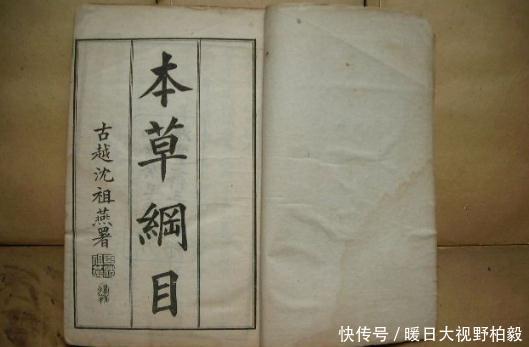 本草綱目
古越沈祖燕署
快传号/暖日大视野柏毅